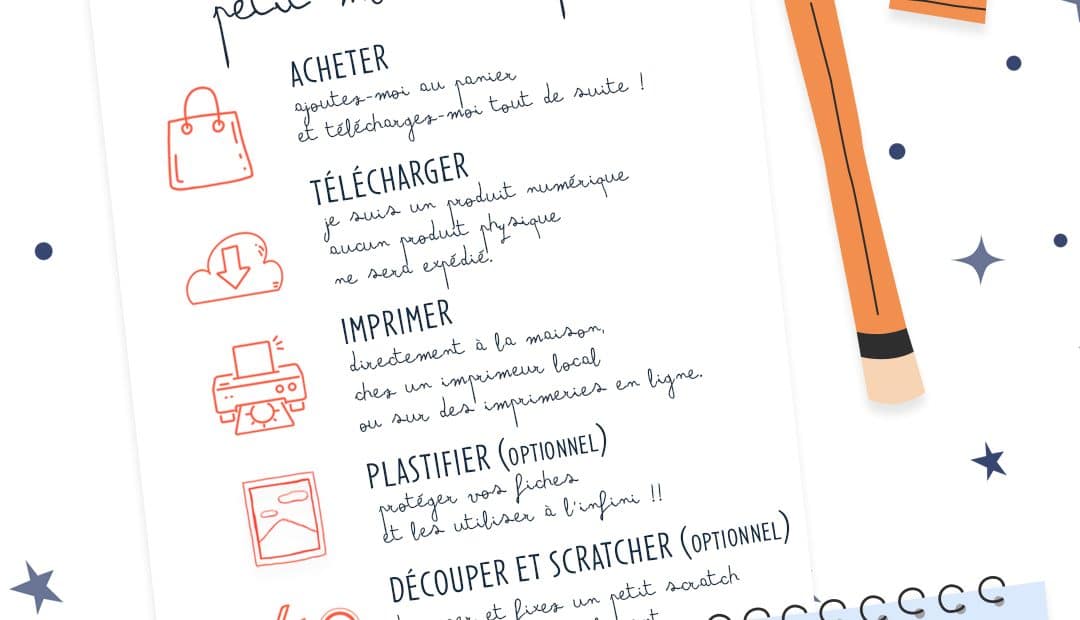 petit
ACHETER
ajoutez-moi au panier
et téléchargez-moi tout de suite !
TÉLÉCHARGER
je suis un produit numérique
aucun produit physique
ne sera expédié.
IMPRIMER
directement à la maison,
chez un imprimeur local
ou sur des imprimeries en ligne.
PLASTIFIER (OPTIONNEL)
protéger vos fiches
et les utiliser à l'infini !!
DÉCOUPER ET SCRATCHER (OPTIONNEL)
et fixez un petit scratch